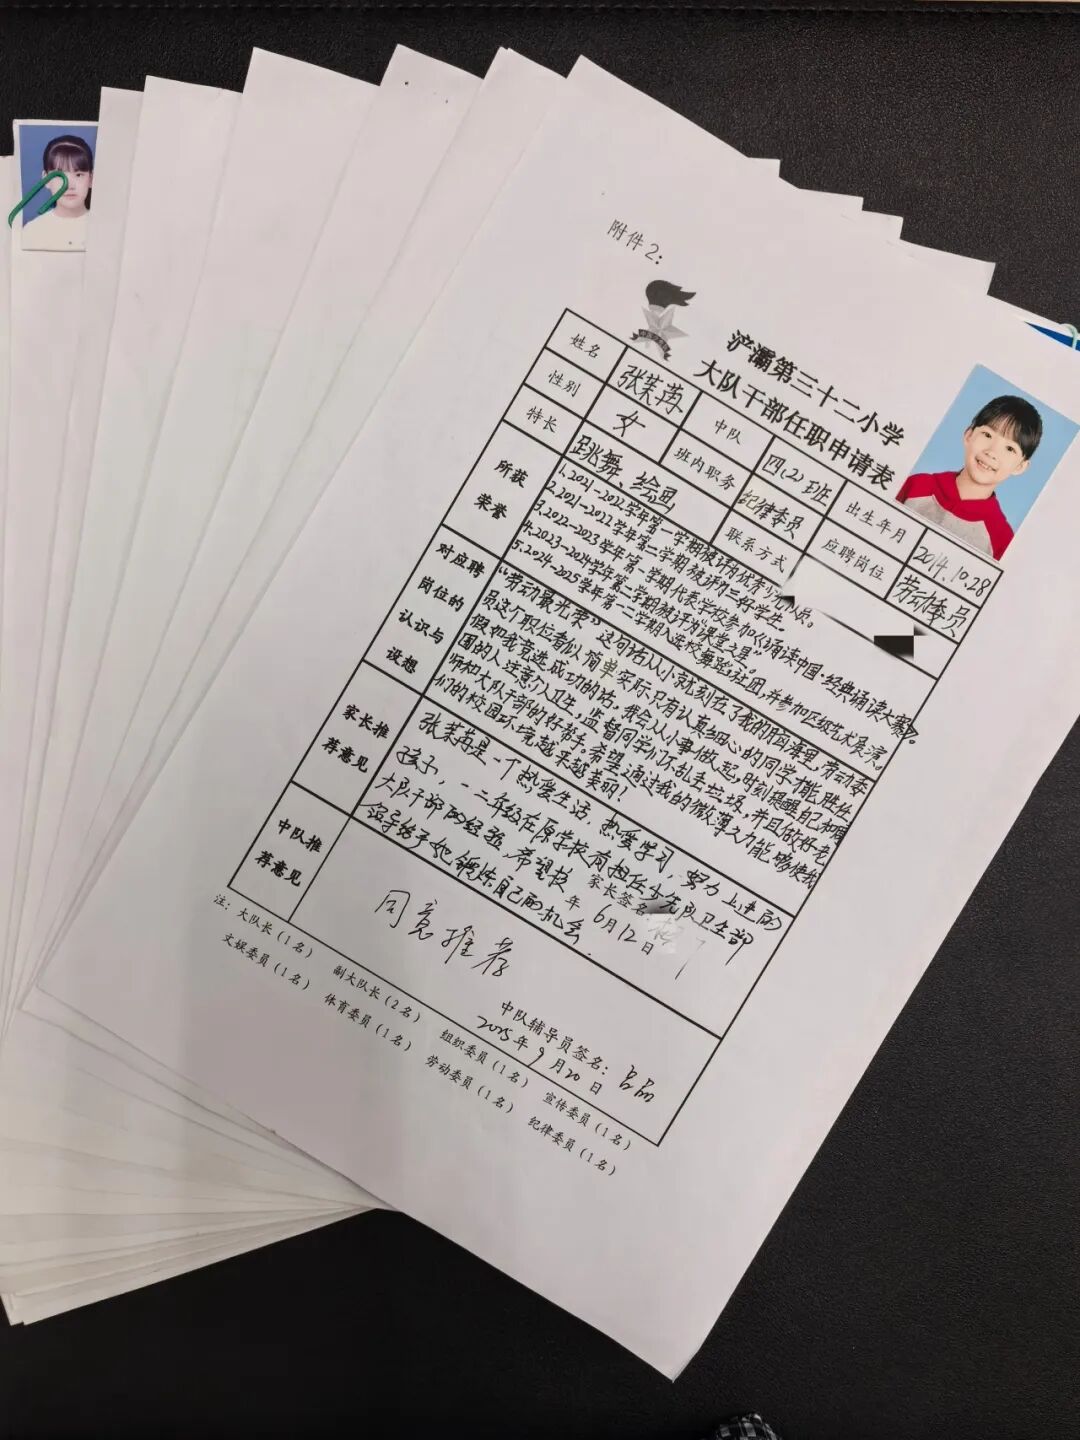 附件2：
浐灞第三十二小学
大队干部任职申请表
姓名 张茉苒 中队 四(2)班 出生年月 2014.10.28
性别 女 班内职务 纪律委员 应聘岗位 劳动委员
特长 跳舞、绘画 联系方式
所获荣誉
1.2021-2022学年第一学期被评为优秀少先队员。
2.2021-2022学年第二学期被评为三好学生。
3.2022-2023学年第一学期代表学校参加《诵读中国·经典诵读大赛》。
4.2023-2024学年第二学期被评为“课堂之星”。
5.2024-2025学年第一二学期入选校舞蹈社团，并参加区级艺术展演。
对应聘岗位的认识与设想
“劳动最光荣”这句话从小就刻在了我的脑海里，劳动委
员这个职位看似简单实际只有认真细心的同学才能胜任，
假如我竞选成功的话，我会从小事做起，时刻提醒自己和周
围的人注意个人卫生，监督同学们不乱丢垃圾，并且做好老
师和大队干部的好帮手。希望通过我的微薄之力能够使我
们的校园环境越来越美丽！
家长推荐意见
张茉苒是一个热爱生活，热爱学习，努力上进的
孩子，一二年级在原学校有担任少先队卫生部
大队干部的经验，希望校
领导给予她锻炼自己的机会.
家长签名：
年 6月12日
中队推荐意见
同意推荐
中队辅导员签名：
2025年9月20日
注：大队长（1名） 副大队长（2名） 组织委员（1名） 宣传委员（1名）
文娱委员（1名） 体育委员（1名） 劳动委员（1名） 纪律委员（1名）